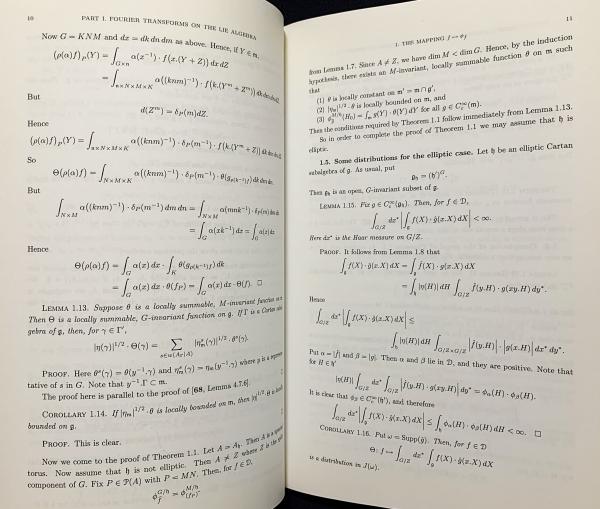 10 PART I. FOURIER TRANSFORMS ON THE LIE ALGEBRA
Now G = KNM and dx = dk dn dm as above. Hence, if Y ∈ 𝔪,
(ρ(α)f)_P(Y) = ∫_{G×𝔫} α(x⁻¹) · f(x.(Y + Z)) dx dZ
= ∫_{𝔫×N×M×K} α((knm)⁻¹) · f(k.(Y^m + Z^m)) dk dm dn dZ.
But
d(Z^m) = δ_P(m)dZ.
Hence
(ρ(α)f)_P(Y) = ∫_{𝔫×N×M×K} α((knm)⁻¹) · δ_P(m⁻¹) · f(k.(Y^m + Z)) dk dm dn dZ.
So
Θ(ρ(α)f) = ∫_{N×M×K} α((knm)⁻¹) · δ_P(m⁻¹) · θ(g_{P(k⁻¹)f}) dk dm dn.
But
∫_{N×M} α((knm)⁻¹) · δ_P(m⁻¹) dm dn = ∫_{N×M} α(mnk⁻¹) · δ_P(m) dm dn
= ∫_G α(xk⁻¹) dx = ∫_G α(x) dx
Hence
Θ(ρ(α)f) = ∫_G α(x) dx · ∫_K θ(g_{P(k⁻¹)f}) dk
= ∫_G α(x) dx · θ(f_P) = ∫_G α(x) dx · Θ(f). □
LEMMA 1.13. Suppose θ is a locally summable, M-invariant function on
Then Θ is a locally summable, G-invariant function on 𝔤. If Γ is a Cartan
gebra of 𝔤, then, for γ ∈ Γ′,
|η(γ)|^{1/2} · Θ(γ) = ∑_{s∈𝔴(A_Γ|A)} |η^s_𝔪(γ)|^{1/2} · θ^s(γ).
PROOF. Here θ^s(γ) = θ(y⁻¹.γ) and η^s_𝔪(γ) = η_𝔪(y⁻¹.γ) where y is a
tative of s in G. Note that y⁻¹.Γ ⊂ 𝔪.
The proof here is parallel to the proof of [68, Lemma 4.7.6].
COROLLARY 1.14. If |η_𝔪|^{1/2} · θ is locally bounded on 𝔪, then |η|^{1/2} · Θ is
bounded on 𝔤.
PROOF. This is clear.
Now we come to the proof of Theorem 1.1. Let A = A_𝔥. Then A is a
torus. Now assume that 𝔥 is not elliptic. Then A ≠ Z where Z is the
component of G. Fix P ∈ 𝒫(A) with P = MN. Then, for f ∈ 𝒟,
ϕ_f^{G/𝔥} = ϕ_{(f_P)}^{M/𝔥}.
1. THE MAPPING f ↦ ϕ_f 11
from Lemma 1.7. Since A ≠ Z, we have dim M < dim G. Hence, by the induction
hypothesis, there exists an M-invariant, locally summable function θ on 𝔪 such
that
(1) θ is locally constant on 𝔪′ = 𝔪 ∩ 𝔤′,
(2) |η_𝔪|^{1/2} · θ is locally bounded on 𝔪, and
(3) ϕ_g^{M/𝔥}(H₀) = ∫_𝔪 g(Y) · θ(Y) dY for all g ∈ C_c^∞(𝔪).
Then the conditions required by Theorem 1.1 follow immediately from Lemma 1.13.
So in order to complete the proof of Theorem 1.1 we may assume that 𝔥 is
elliptic.
1.5. Some distributions for the elliptic case. Let 𝔥 be an elliptic Cartan
subalgebra of 𝔤. As usual, put
𝔤_𝔥 = (𝔥′)^G.
Then 𝔤_𝔥 is an open, G-invariant subset of 𝔤.
LEMMA 1.15. Fix g ∈ C_c^∞(𝔤_𝔥). Then, for f ∈ 𝒟,
∫_{G/Z} dx* |∫_𝔤 f(X) · ĝ(x.X) dX| < ∞.
Here dx* is the Haar measure on G/Z.
PROOF. It follows from Lemma 1.8 that
∫_𝔤 f(X) · ĝ(x.X) dX = ∫_𝔤 f̂(X) · g(x.X) dX
= ∫_𝔥 |η(H)| dH ∫_{G/Z} f̂(y.H) · g(xy.H) dy*.
Hence
∫_{G/Z} dx* |∫_𝔤 f(X) · ĝ(x.X) dX| ≤
∫_𝔥 |η(H)| dH ∫_{G/Z×G/Z} |f̂(y.H)| · |g(x.H)| dx* dy*.
Put α = |f̂| and β = |g|. Then α and β lie in 𝒟, and they are positive. Note that
for H ∈ 𝔥′
|η(H)| ∫_{G/Z} dx* ∫_{G/Z} |f̂(y.H) · g(xy.H)| dy* = ϕ_α(H) · ϕ_β(H).
It is clear that ϕ_β ∈ C_c^∞(𝔥′), and therefore
∫_{G/Z} dx* |∫_𝔤 f(X) · ĝ(x.X) dX| ≤ ∫_𝔥 ϕ_α(H) · ϕ_β(H) dH < ∞. □
COROLLARY 1.16. Put ω = Supp(ĝ). Then, for f ∈ 𝒟
Θ: f ↦ ∫_{G/Z} dx* ∫_𝔤 f(X) · ĝ(x.X) dX
is a distribution in J(ω).